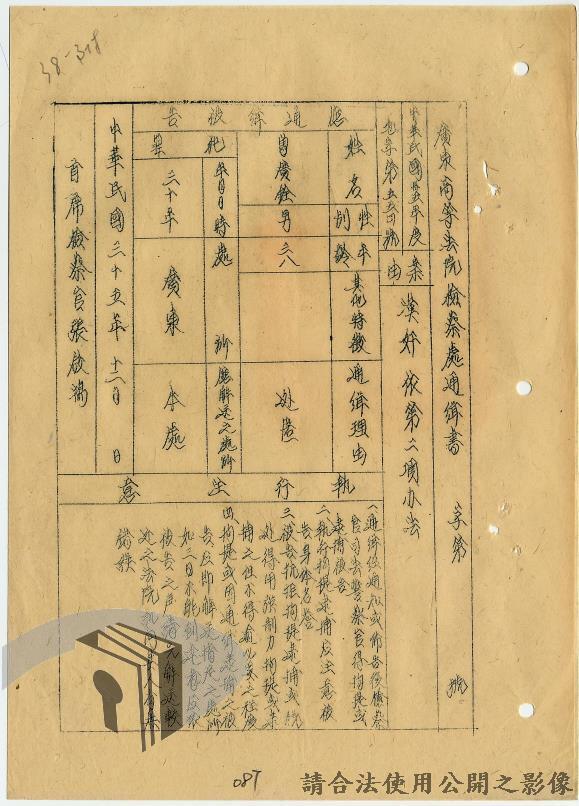 38-318
廣東高等法院檢察處通緝書 字第 號
中華民國卅五年度
字第五五四號
案由
漢奸 依第二項办法
應通緝被告
姓名
曾廣銓
性別
男
年齡
三八
其他特徵
通緝理由
犯罪
年月日時
三十年
處所
廣東
應解送之處所
本處
中華民國三十五年十二月 日
首席檢察官張啟鴻
執行注意
一、通緝經通知或佈告後檢察
官司法警察官得拘提或
逮捕被告
二、執行拘提逮捕應注意被
告身体名譽
三、被告抗拒拘提逮捕或脫
逃得用強制力拘提或逮
捕之但不得逾必要之程度
四、拘提或因通緝逮捕之被
告應即解送指定之處所
如三日不能到達應依
被告之声請先解送較
近之法院訊問其人有無
錯誤
087
請合法使用公開之影像